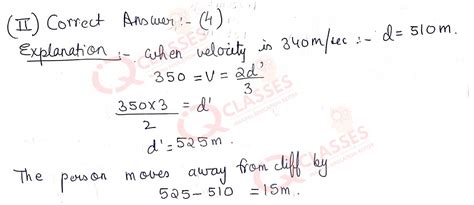 (II) Correct Answer :- (4)
Explanation :- when velocity is 340m/sec :- d = 510m.
350 = V = 2d'/3
350×3/2 = d'
d' = 525m.
The person moves away from cliff by
525 - 510 = 15m.
CLASSES
CLASSES
CLASSES